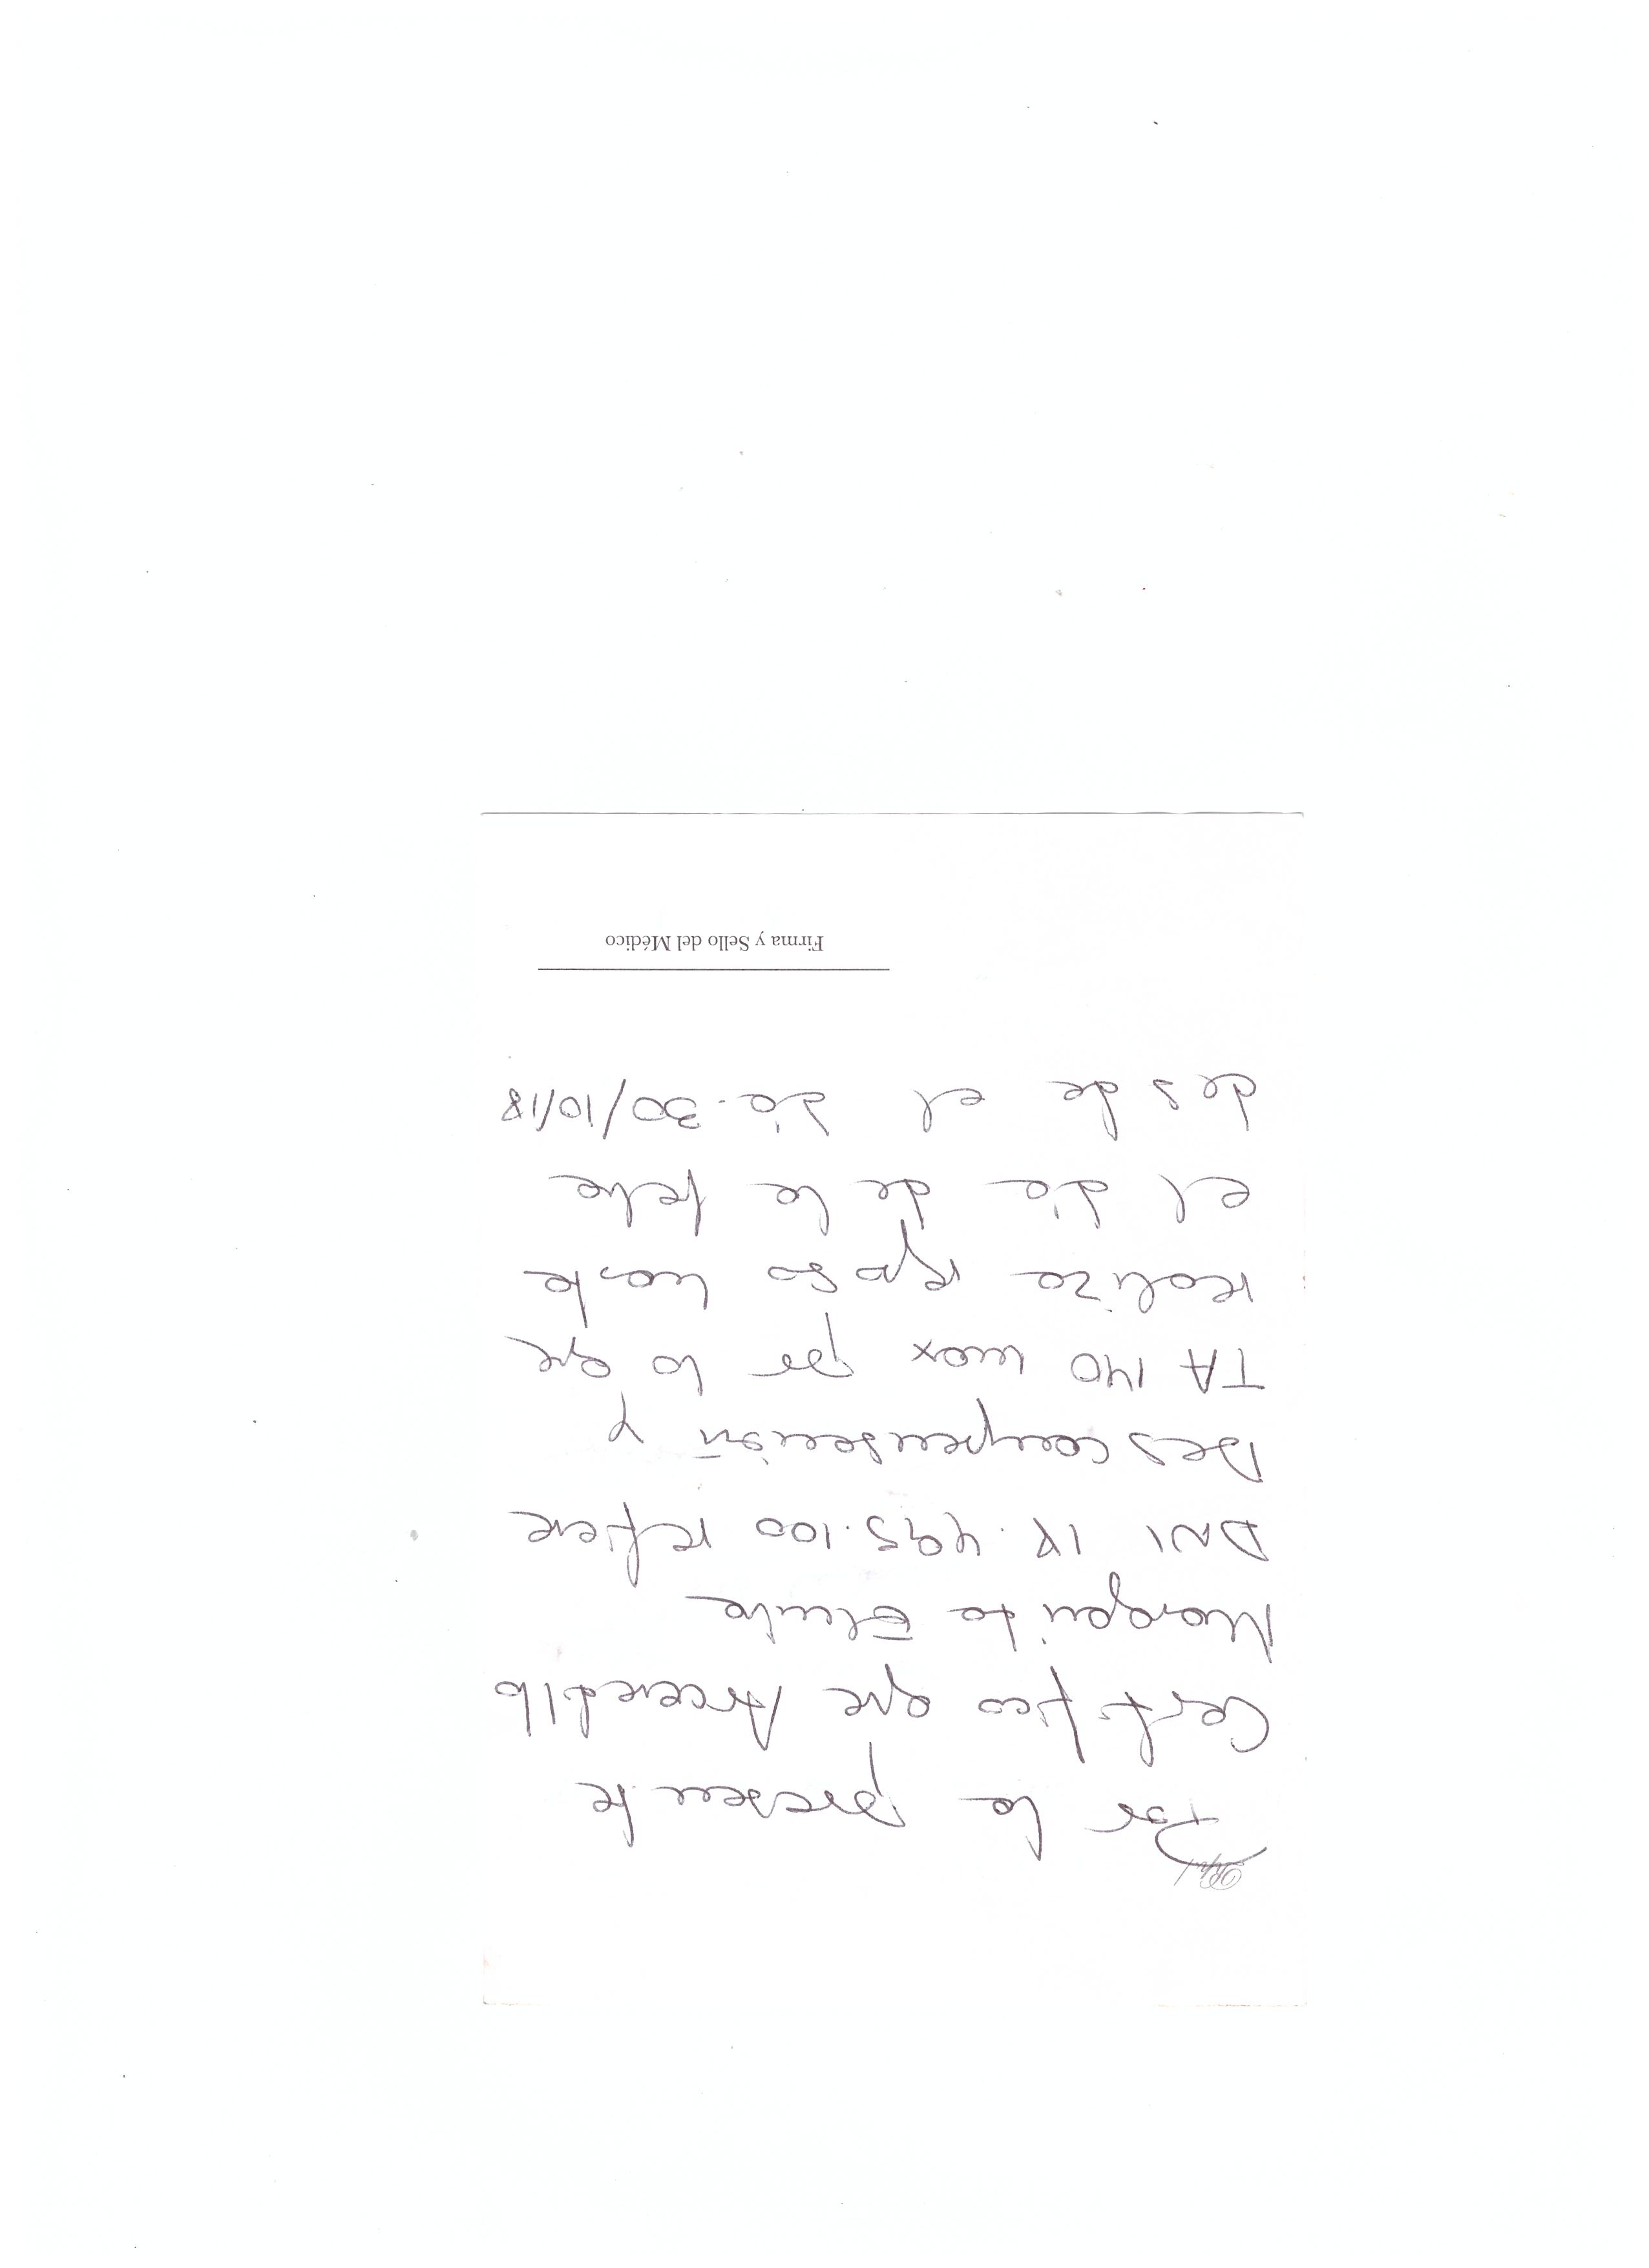 Rp/
Por la presente
Certifico que
Margarita
DNI 18.495.100 refiere
Descompensación y
TA 140 max por lo que
realiza reposo hasta
el día de la fecha
desde el día 30/10/18
Firma y Sello del Médico